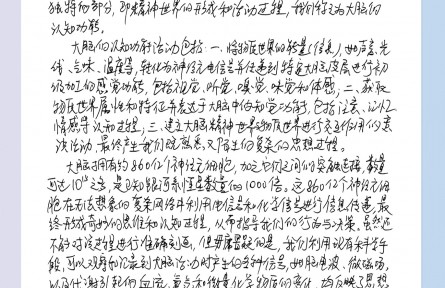 独特的部分,即精神世界的形成和活动过程,我们称之为大脑的
认知功能。
大脑的认知功能活动包括:一、将物质世界的能量(信息),如声音、光
线、气味、温度等,转化为神经电信号并传递到特定大脑皮层进行初
级加工的感觉功能,包括视觉、听觉、嗅觉、味觉和体感;二、获取
物质世界属性和特征并表达于大脑中的知觉功能,包括注意、记忆
情感等认知过程;三、建立大脑精神世界与物质世界进行交互作用的意
决活动,最终产生我们既熟悉又陌生的复杂的思想过程。
大脑拥有约860亿个神经元细胞,加之它们之间的突触连接,数量
可达10 之多,是已知银河系恒星数量的1000倍。这860亿个神经元细
胞在无法想象的复杂网络中利用电信号和化学信号进行信息传递,最
终形成奇妙的思维和认知过程,从而指导我们的行为与决策。虽然还
不能对该过程进行准确刻画,但毋庸置疑的是,我们利用现有科学手
段,可以观察和记录到大脑活动时产生的各种信号,如脑电波、微磁场,
以及代谢引起的血流、氧和微量化学物质的变化,均反映了思想